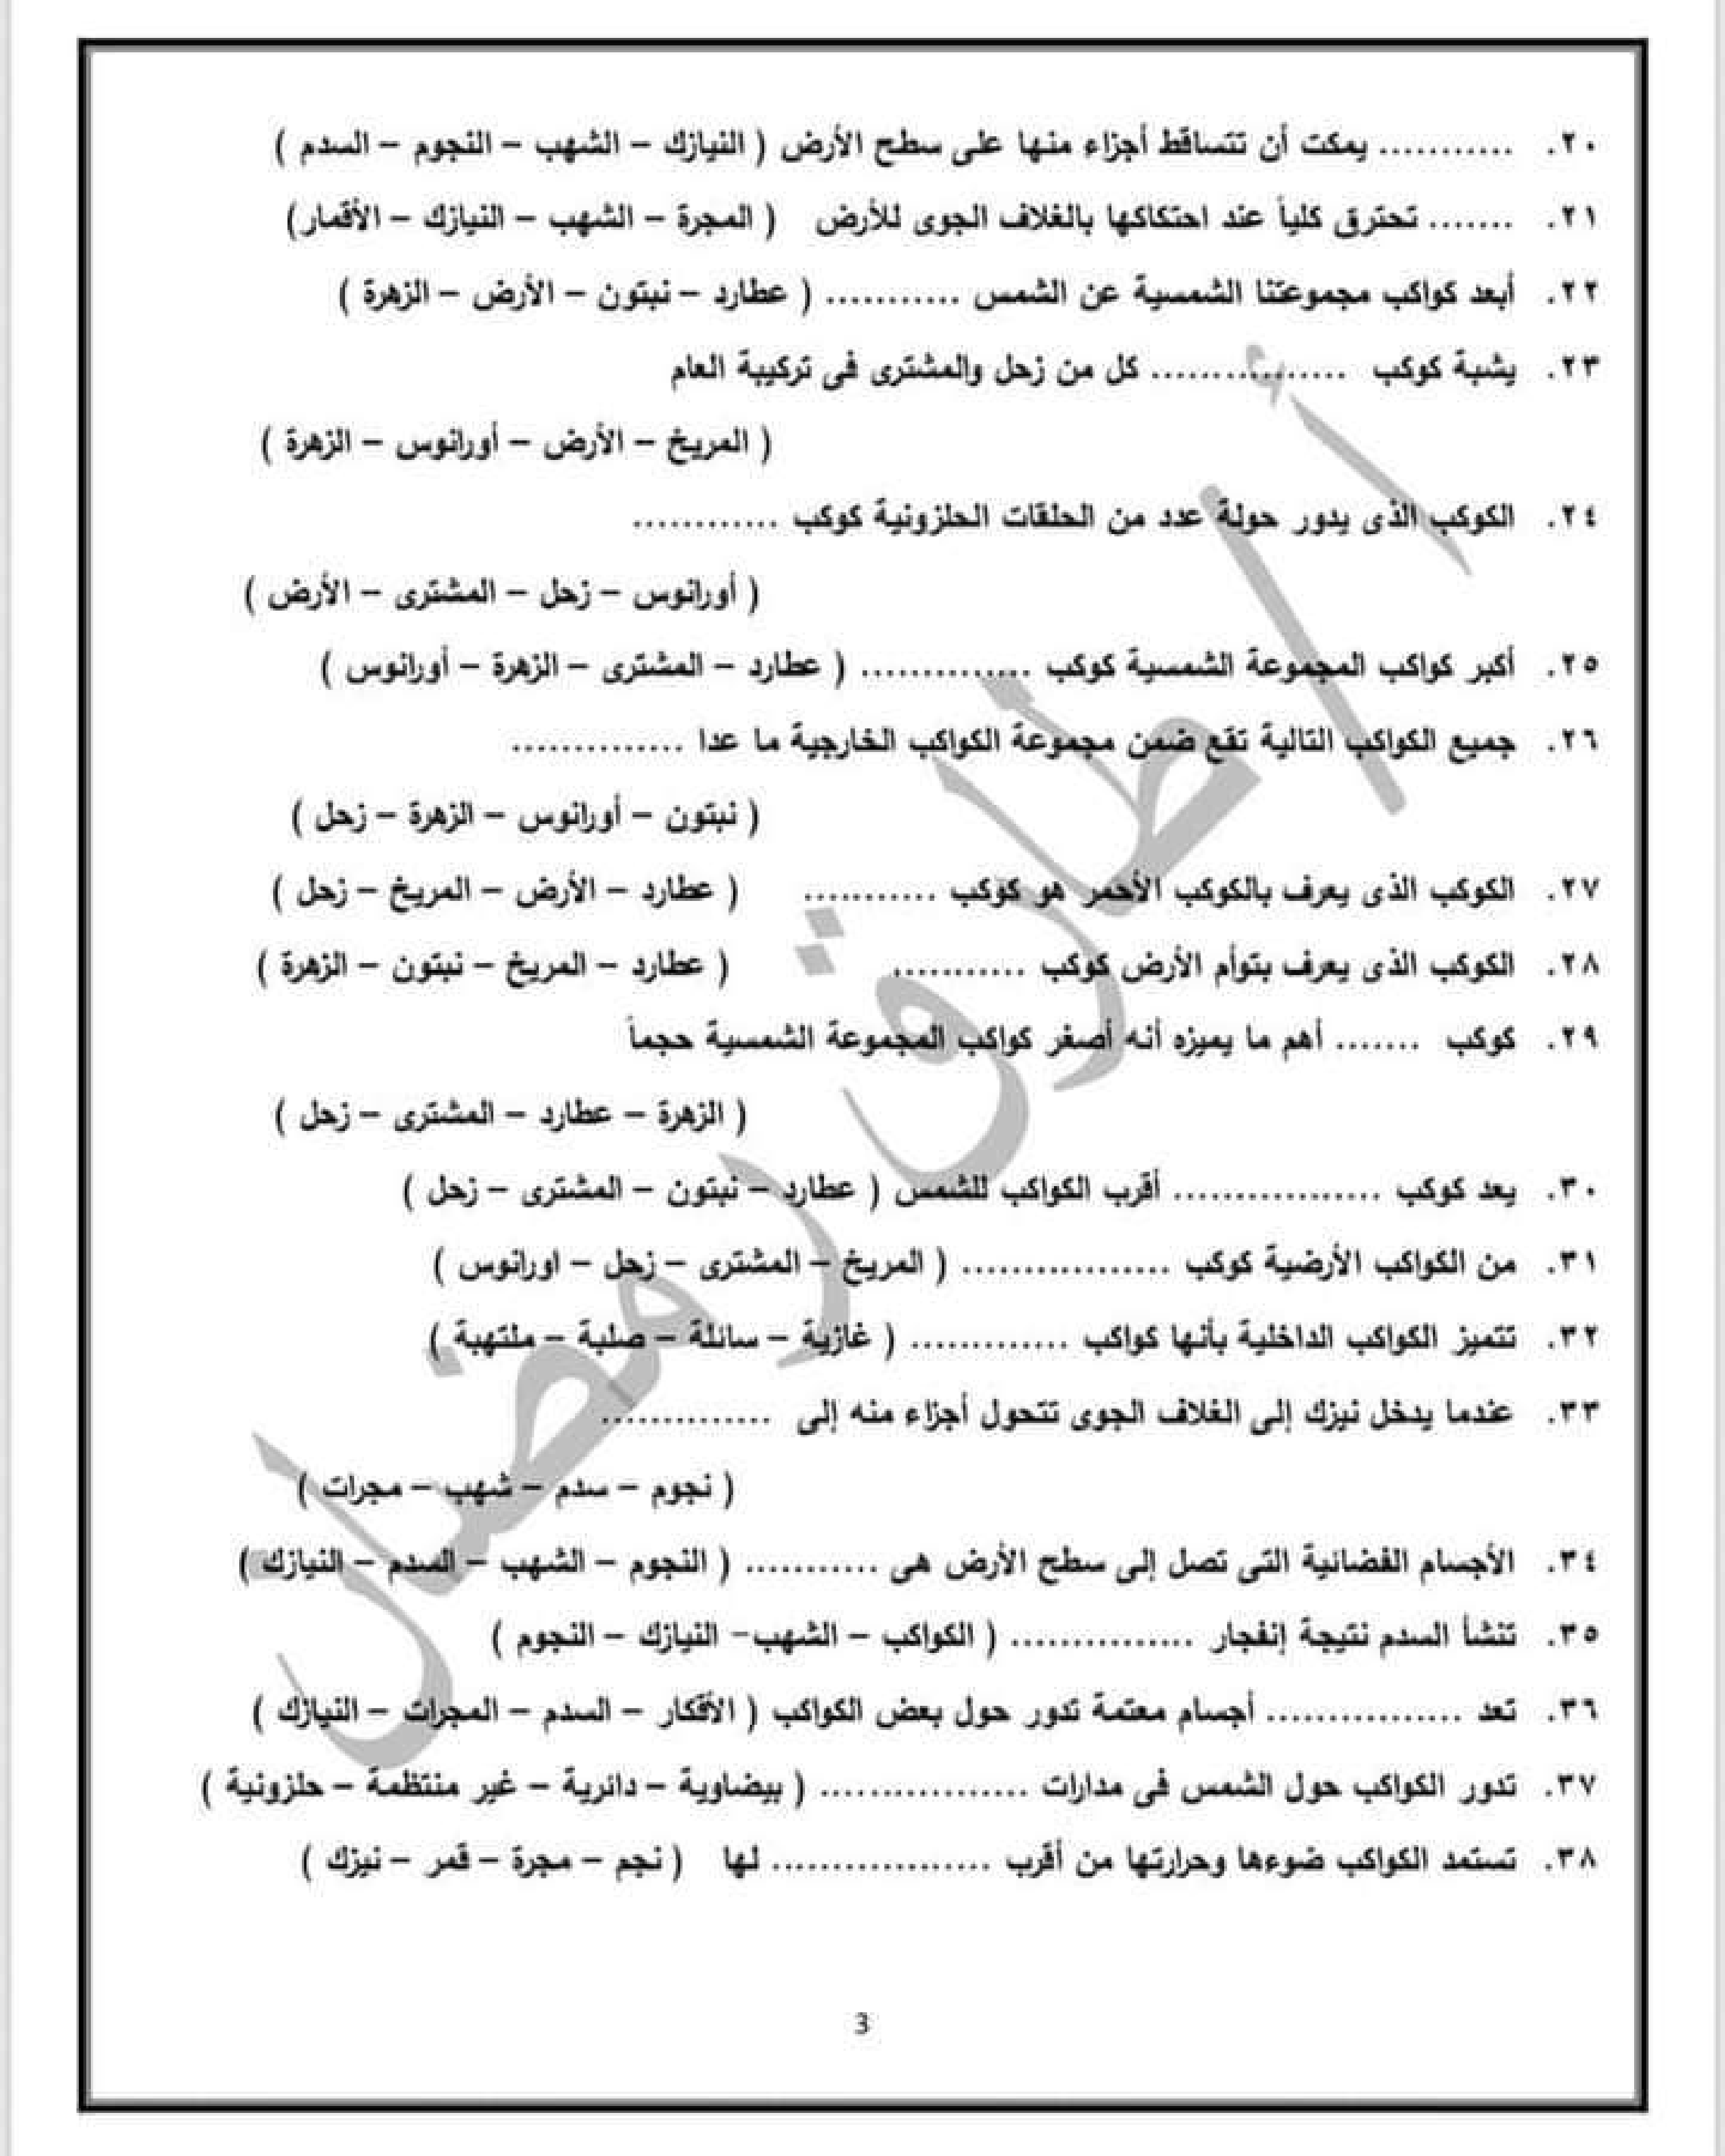 ٢٠. ........... يمكت أن تتساقط أجزاء منها على سطح الأرض ( النيازك – الشهب – النجوم – السدم )
٢١. ....... تحترق كلياً عند احتكاكها بالغلاف الجوى للأرض ( المجرة – الشهب – النيازك – الأقمار)
٢٢. أبعد كواكب مجموعتنا الشمسية عن الشمس ........... ( عطارد – نبتون – الأرض – الزهرة )
٢٣. يشبة كوكب ................ كل من زحل والمشترى فى تركيبة العام
( المريخ – الأرض – أورانوس – الزهرة )
٢٤. الكوكب الذى يدور حولة عدد من الحلقات الحلزونية كوكب ............
( أورانوس – زحل – المشترى – الأرض )
٢٥. أكبر كواكب المجموعة الشمسية كوكب .............. ( عطارد – المشترى – الزهرة – أورانوس )
٢٦. جميع الكواكب التالية تقع ضمن مجموعة الكواكب الخارجية ما عدا ..............
( نبتون – أورانوس – الزهرة – زحل )
٢٧. الكوكب الذى يعرف بالكوكب الأحمر هو كوكب ........... ( عطارد – الأرض – المريخ – زحل )
٢٨. الكوكب الذى يعرف بتوأم الأرض كوكب ........... ( عطارد – المريخ – نبتون – الزهرة )
٢٩. كوكب ....... أهم ما يميزه أنه أصغر كواكب المجموعة الشمسية حجماً
( الزهرة – عطارد – المشترى – زحل )
٣٠. يعد كوكب ................. أقرب الكواكب للشمس ( عطارد – نبتون – المشترى – زحل )
٣١. من الكواكب الأرضية كوكب ................. ( المريخ – المشترى – زحل – اورانوس )
٣٢. تتميز الكواكب الداخلية بأنها كواكب ............. ( غازية – سائلة – صلبة – ملتهبة )
٣٣. عندما يدخل نيزك إلى الغلاف الجوى تتحول أجزاء منه إلى ..............
( نجوم – سدم – شهب – مجرات )
٣٤. الأجسام الفضائية التى تصل إلى سطح الأرض هى ........... ( النجوم – الشهب – السدم – النيازك )
٣٥. تنشأ السدم نتيجة إنفجار ............... ( الكواكب – الشهب– النيازك – النجوم )
٣٦. تعد ................ أجسام معتمة تدور حول بعض الكواكب ( الأفكار – السدم – المجرات – النيازك )
٣٧. تدور الكواكب حول الشمس فى مدارات ................. ( بيضاوية – دائرية – غير منتظمة – حلزونية )
٣٨. تستمد الكواكب ضوءها وحرارتها من أقرب .................. لها ( نجم – مجرة – قمر – نيزك )
أ / طارق رمضان
3